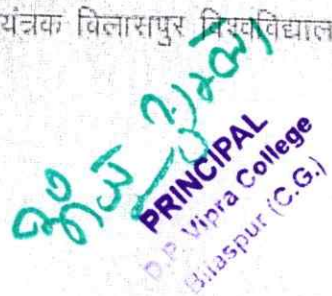 यंत्रक विलासपुर विश्वविद्याल
PRINCIPAL
D.P. Vipra College
Bilaspur (C.G.)